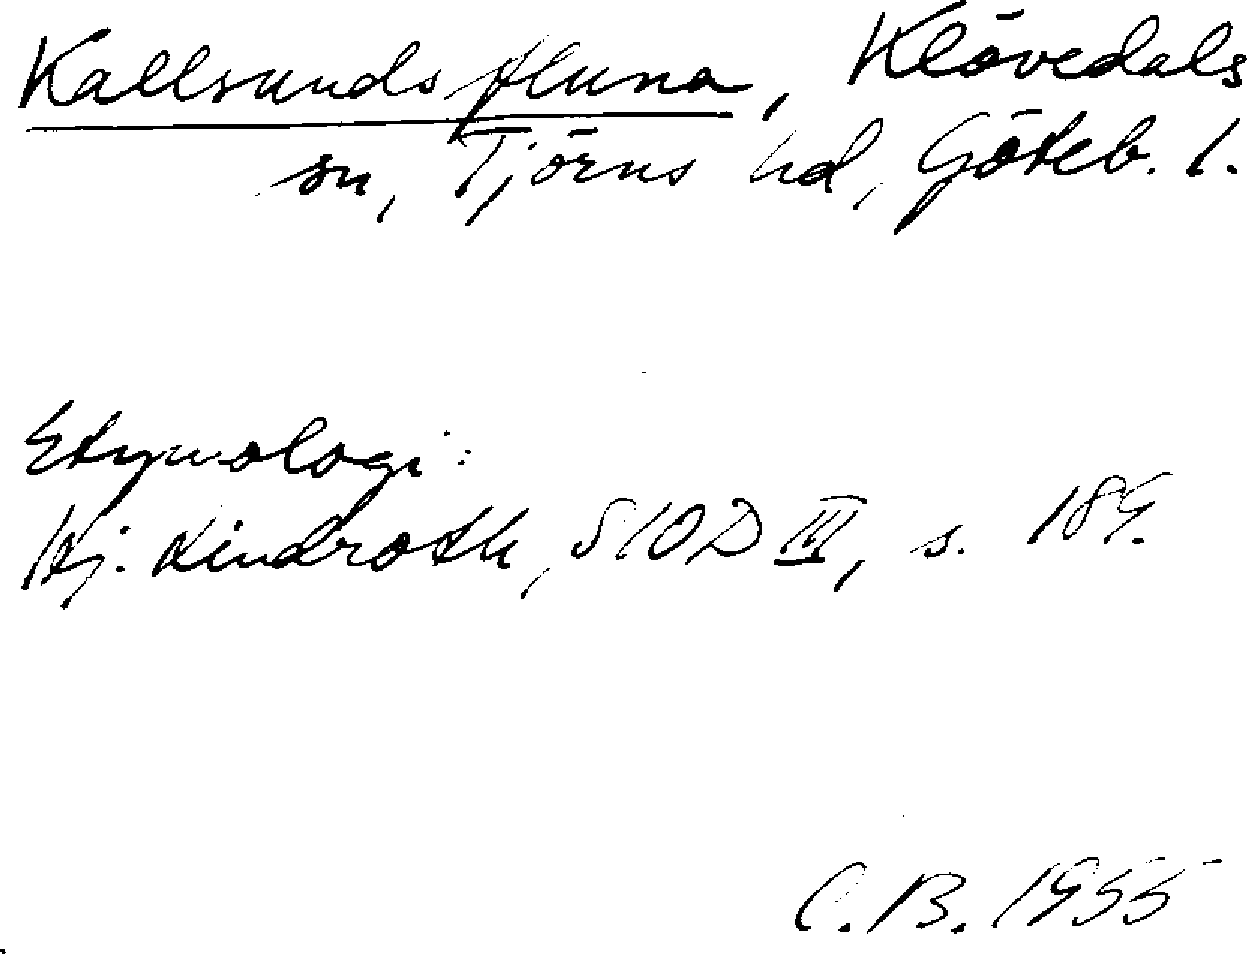 Kallsundsfluna, Klövedals
sn, Tjörns hd, Göteb. l.
Etymologi:
Hj. Lindroth, SIOD III, s. 189.
C.B. 1955